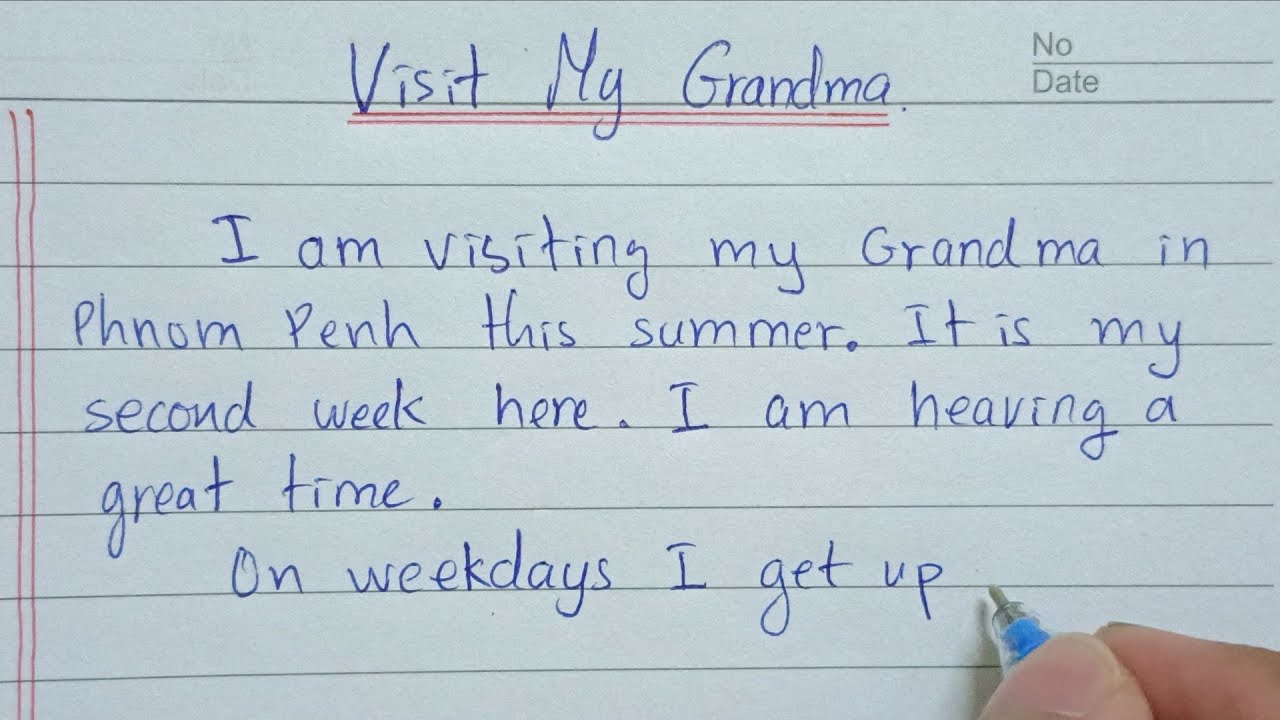 Visit My Grandma.
No
Date
I am visiting my Grandma in
Phnom Penh this summer. It is my
second week here. I am heaving a
great time.
On weekdays I get up